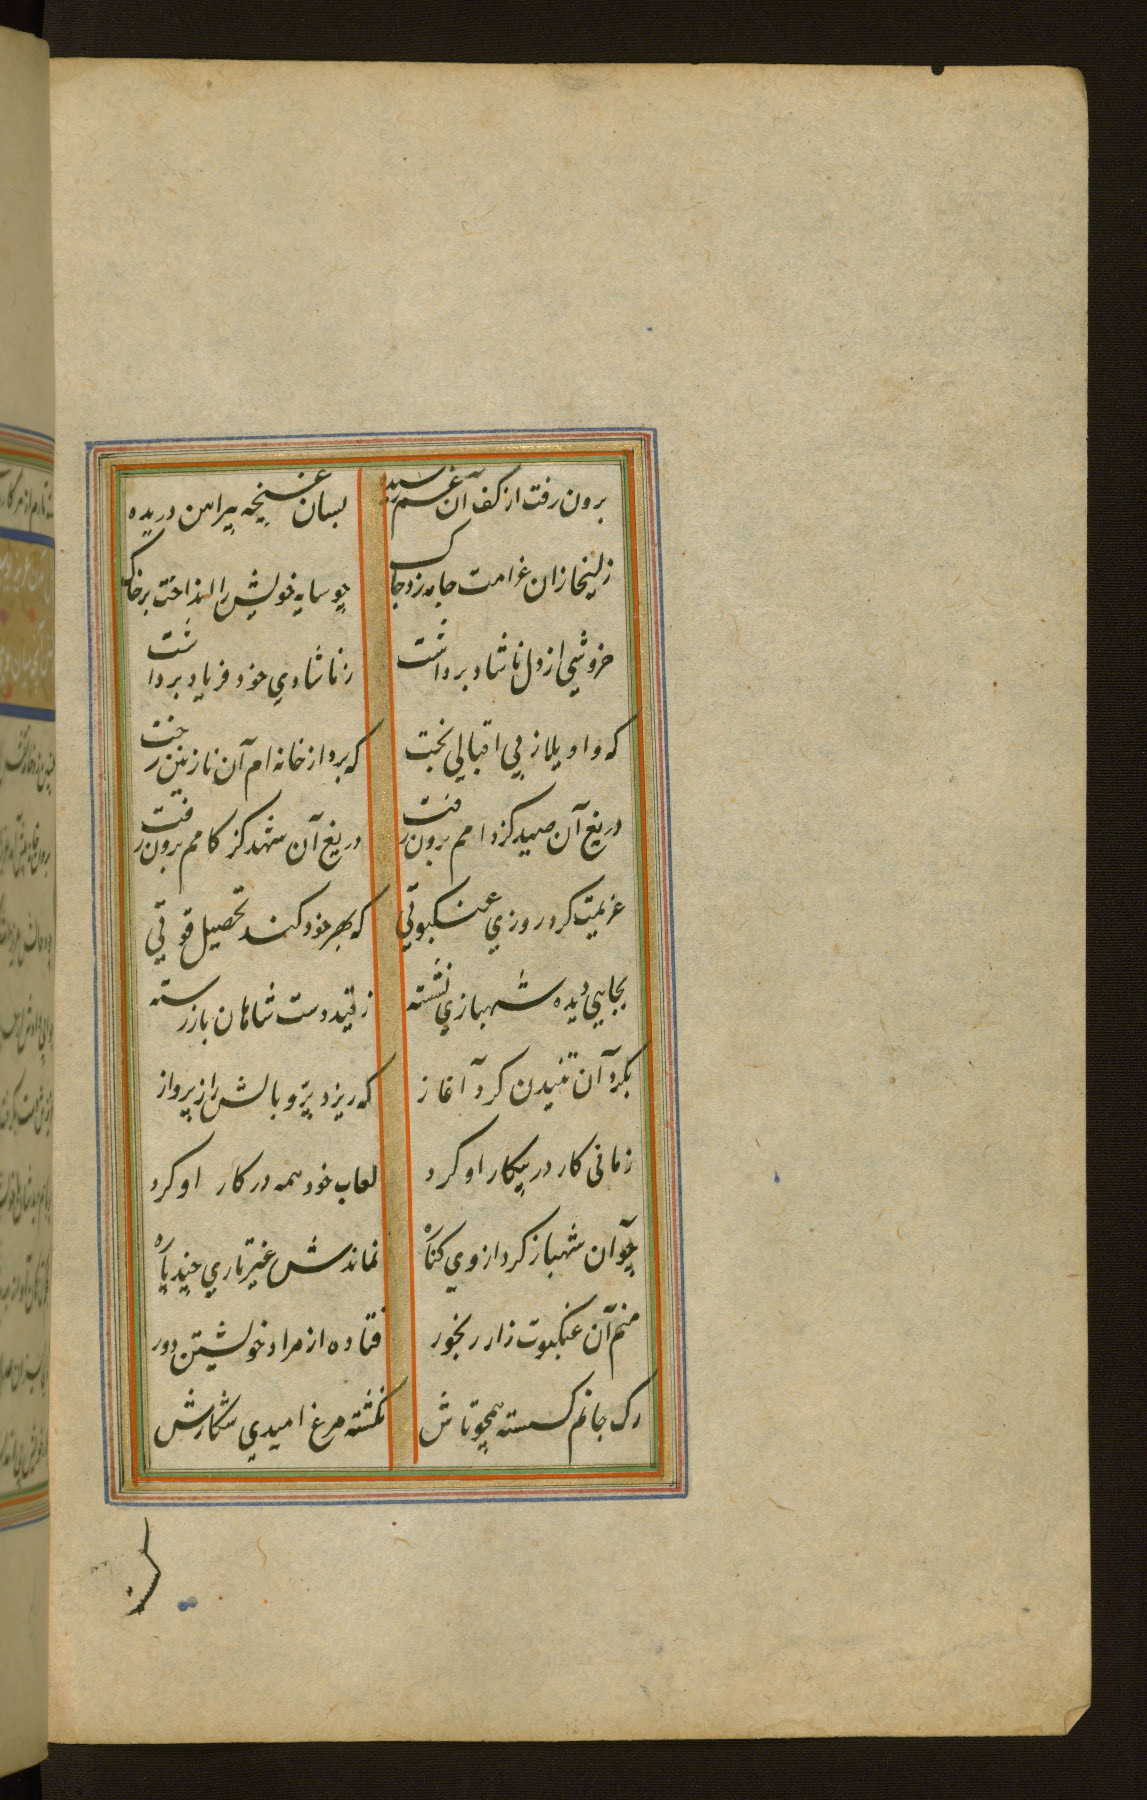 برون رفت از کف آن غم رسیده بسان غنچه پیراهن دریده
زلیخا زان غرامت جامه زد چاک چو سایه خویش را انداخت بر خاک
خروشی از دل ناشاد برداشت ز ناشادي خود فریاد برداشت
که واویلا ز بی اقبالی بخت که برد از خانه ام آن نازنین رخت
دریغ آن صید کز دامم برون رفت دریغ آن شهد کز کامم برون رفت
عزیمت کرد روزي عنکبوتی که بهر خود کند تحصیل قوتی
بجایی دیده شهبازي نشسته ز قید دست شاهان باز رسته
بگرد آن تنیدن کرد آغاز که ریزد پر و بالش را ز پرواز
زمانی کار در پیکار او کرد لعاب خود همه در کار او کرد
چو آن شهباز کرد از وي کناره نماندش غیر تاري چند پاره
منم آن عنکبوت زار رنجور فتاده از مراد خویشتن دور
رک جانم کسسته همچو تارش نکشته مرغ امیدي شکارش